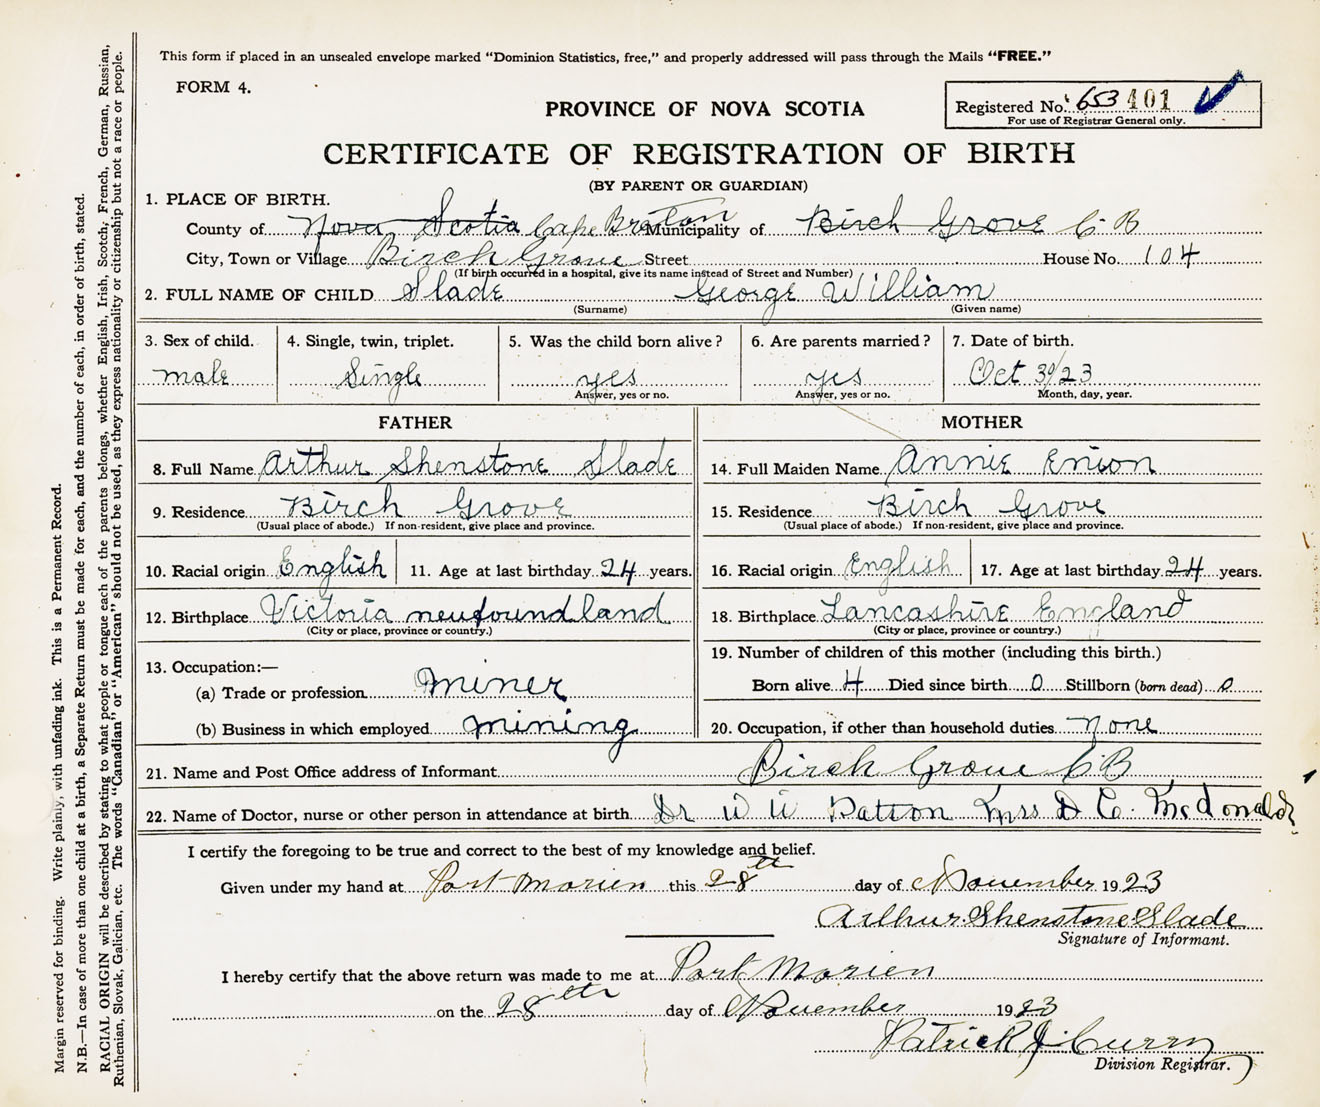 This form if placed in an unsealed envelope marked "Dominion Statistics, free," and properly addressed will pass through the Mails "FREE."
FORM 4.
Registered No. 653 401
For use of Registrar General only.
PROVINCE OF NOVA SCOTIA
CERTIFICATE OF REGISTRATION OF BIRTH
(BY PARENT OR GUARDIAN)
1. PLACE OF BIRTH.
County of Nova Scotia Cape Breton Municipality of Birch Grove C B
City, Town or Village Birch Grove Street House No. 104
(If birth occurred in a hospital, give its name instead of Street and Number)
2. FULL NAME OF CHILD Slade George William
(Surname) (Given name)
3. Sex of child. 4. Single, twin, triplet. 5. Was the child born alive? 6. Are parents married? 7. Date of birth.
male Single yes yes Oct 30/23
Answer, yes or no. Answer, yes or no. Month, day, year.
FATHER MOTHER
8. Full Name Arthur Shenstone Slade 14. Full Maiden Name Annie Enion
9. Residence Birch Grove 15. Residence Birch Grove
(Usual place of abode.) If non-resident, give place and province. (Usual place of abode.) If non-resident, give place and province.
10. Racial origin English 11. Age at last birthday 24 years. 16. Racial origin English 17. Age at last birthday 24 years.
12. Birthplace Victoria newfoundland 18. Birthplace Lancashire England
(City or place, province or country.) (City or place, province or country.)
13. Occupation:— 19. Number of children of this mother (including this birth.)
(a) Trade or profession Miner Born alive 4 Died since birth 0 Stillborn (born dead) 0
(b) Business in which employed mining 20. Occupation, if other than household duties None
21. Name and Post Office address of Informant Birch Grove C B
22. Name of Doctor, nurse or other person in attendance at birth Dr W W Patton Mrs D C. McDonald
I certify the foregoing to be true and correct to the best of my knowledge and belief.
Given under my hand at Port Morien this 28th day of November 1923
Arthur Shenstone Slade
Signature of Informant.
I hereby certify that the above return was made to me at Port Morien
on the 28th day of November 1923
Patrick J. Curry
Division Registrar.
Margin reserved for binding. Write plainly, with unfading ink. This is a Permanent Record.
N.B.—In case of more than one child at a birth, a Separate Return must be made for each, and the number of each, in order of birth, stated.
RACIAL ORIGIN will be described by stating to what people or tongue each of the parents belongs, whether English, Irish, Scotch, French, German, Russian,
Ruthenian, Slovak, Galician, etc. The words "Canadian" or "American" should not be used, as they express nationality or citizenship but not a race or people.